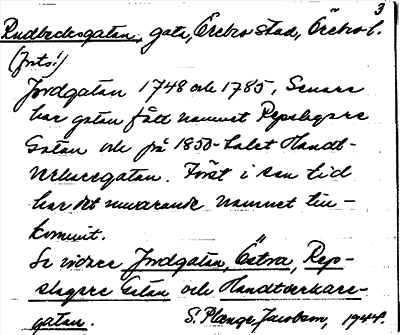 3
Rudbecksgatan, gata, Örebro stad, Örebro l.
(forts!)
Jordgatan 1748 och 1785, Senare
har gatan fått namnet Repslagare
Gatan och på 1850-talet Handt-
verkaregatan. Först i sen tid
har det nuvarande namnet till-
kommit.
Se vidare Jordgatan, Östra, Rep-
slagare Gatan och Handtverkare-
gatan. S. Plange Jacobson, 1944.